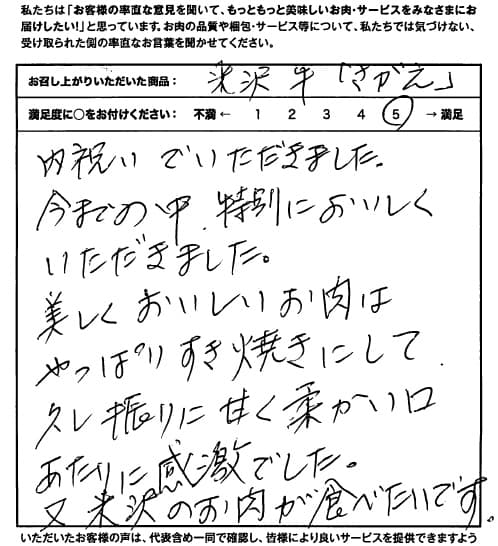 私たちは「お客様の率直な意見を聞いて、もっともっと美味しいお肉・サービスをみなさまにお
届けしたい!」と思っています。お肉の品質や梱包・サービス等について、私たちでは気づけない、
受け取られた側の率直なお言葉を聞かせてください。
お召し上がりいただいた商品： 米沢牛「さがえ」
満足度に○をお付けください： 不満 ← 1 2 3 4 5 → 満足
内祝いでいただきました。
今までの中、特別においしく
いただきました。
美しくおいしいお肉は
やっぱりすき焼きにして
久し振りに甘く柔かい口
あたりに感激でした。
又米沢のお肉が食べたいです。
いただいたお客様の声は、代表含め一同で確認し、皆様により良いサービスを提供できますよう